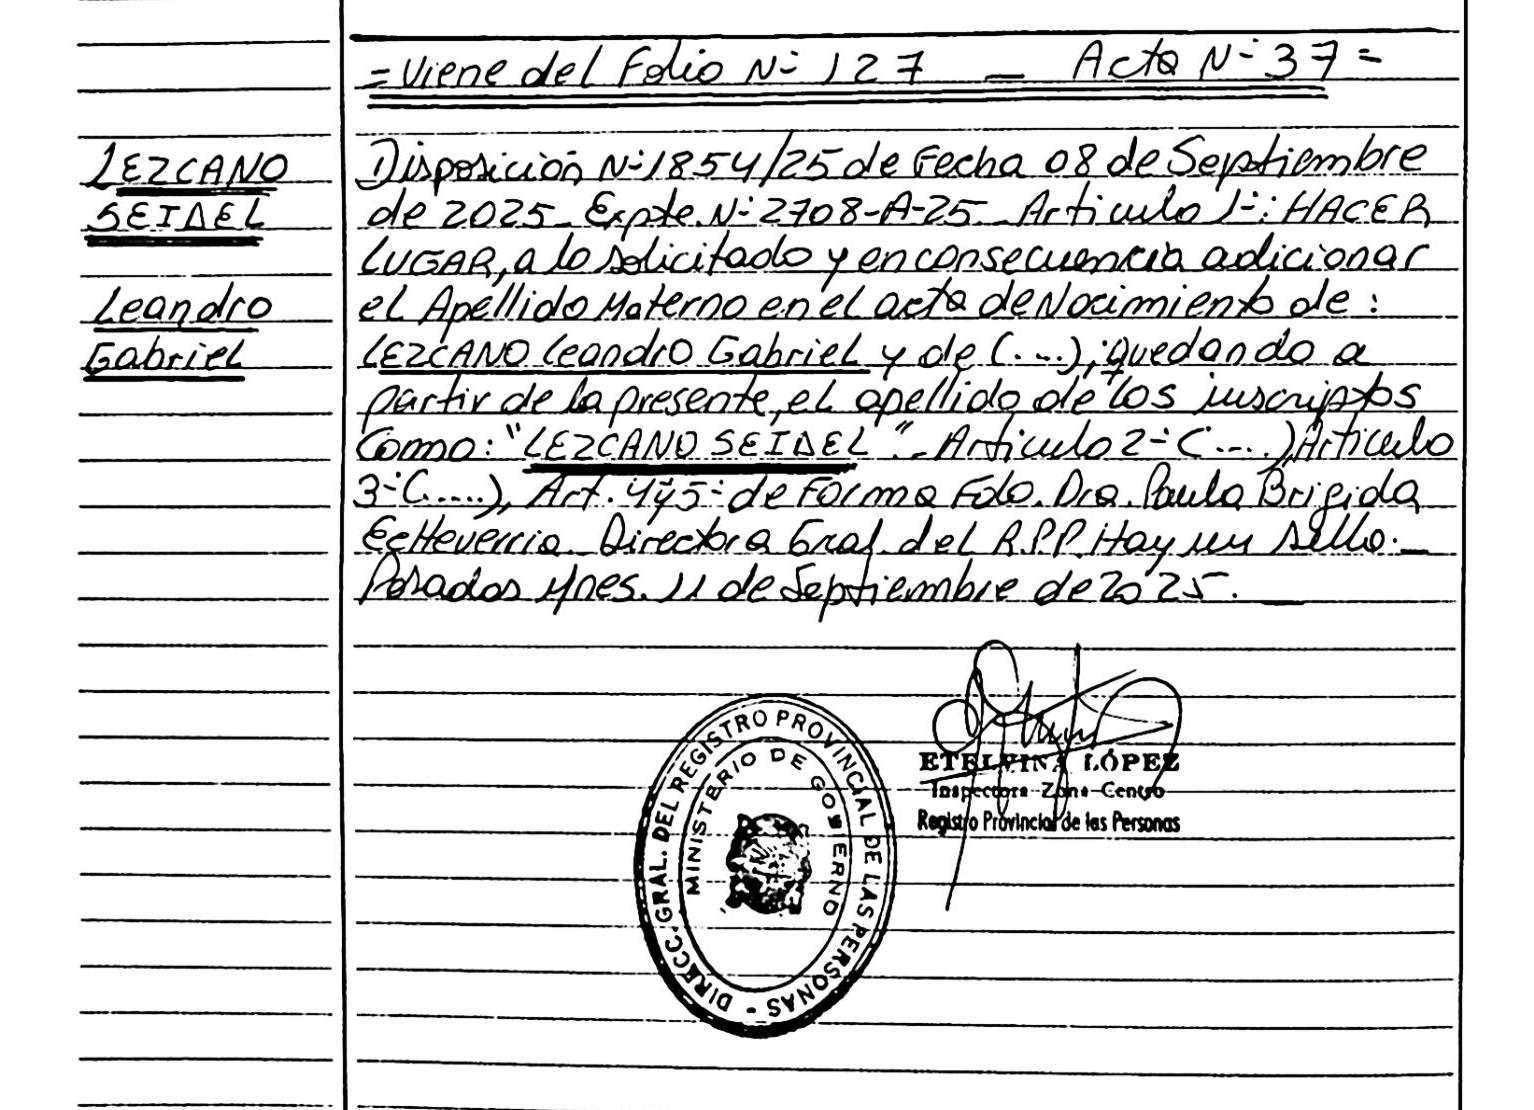 = Viene del Folio Nº 127 — Acta Nº 37 =
LEZCANO
SEIDEL
Leandro
Gabriel
Disposición Nº 1854/25 de Fecha 08 de Septiembre
de 2025_ Expte. Nº 2708-A-25_ Articulo 1º: HACER
LUGAR, a lo solicitado y en consecuencia adicionar
el Apellido Materno en el acta de Nacimiento de :
LEZCANO Leandro Gabriel y de (...); quedando a
partir de la presente, el apellido de los inscriptos
Como: "LEZCANO SEIDEL"._ Articulo 2º (....), Articulo
3º (.....), Art. 4 y 5º de Forma Fdo. Dra. Paula Brigida
Echeverria_ Directora Gral. del R.P.P. Hay un Sello._
Posadas Mnes. 11 de Septiembre de 2025. _
DIRECC. GRAL. DEL REGISTRO PROVINCIAL DE LAS PERSONAS -
MINISTERIO DE GOBIERNO
ETELVINA LÓPEZ
Inspectora Zona Centro
Registro Provincial de las Personas